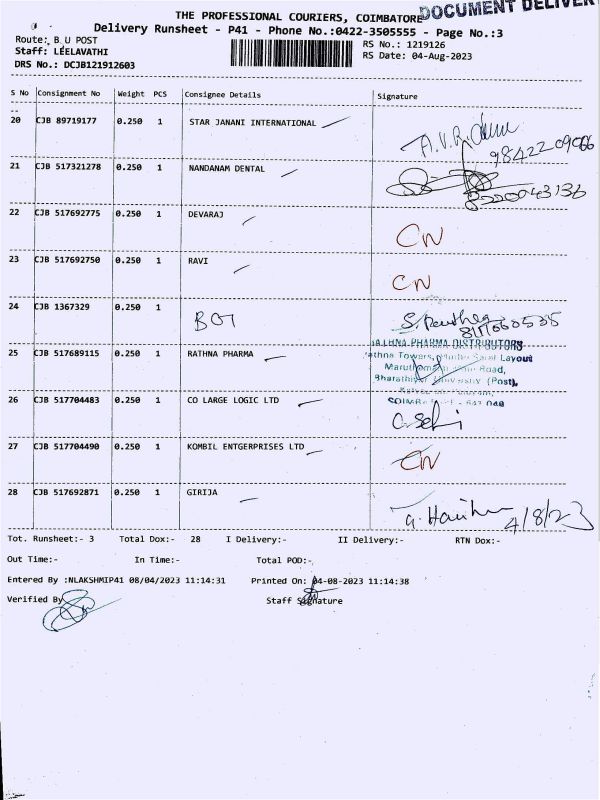 DOCUMENT DELIVERY
THE PROFESSIONAL COURIERS, COIMBATORE
Delivery Runsheet - P41 - Phone No.:0422-3505555 - Page No.:3
Route: B U POST
RS No.: 1219126
Staff: LEELAVATHI
RS Date: 04-Aug-2023
DRS No.: DCJB121912603
S No Consignment No Weight PCS Consignee Details Signature
20 CJB 89719177 0.250 1 STAR JANANI INTERNATIONAL A.V.R.
21 CJB 517321278 0.250 1 NANDANAM DENTAL
22 CJB 517692775 0.250 1 DEVARAJ CN
23 CJB 517692750 0.250 1 RAVI CN
24 CJB 1367329 0.250 1 BOT S.
RATHNA PHARMA DISTRIBUTORS
25 CJB 517689115 0.250 1 RATHNA PHARMA Rathna Towers, Layout
Road,
Bharathiyar University (Post),
26 CJB 517704483 0.250 1 CO LARGE LOGIC LTD
27 CJB 517704490 0.250 1 KOMBIL ENTGERPRISES LTD CN
28 CJB 517692871 0.250 1 GIRIJA 4/8/23
Tot. Runsheet:- 3 Total Dox:- 28 I Delivery:- II Delivery:- RTN Dox:-
Out Time:- In Time:- Total POD:-
Entered By :NLAKSHMIP41 08/04/2023 11:14:31 Printed On: 04-08-2023 11:14:38
Verified By Staff Signature